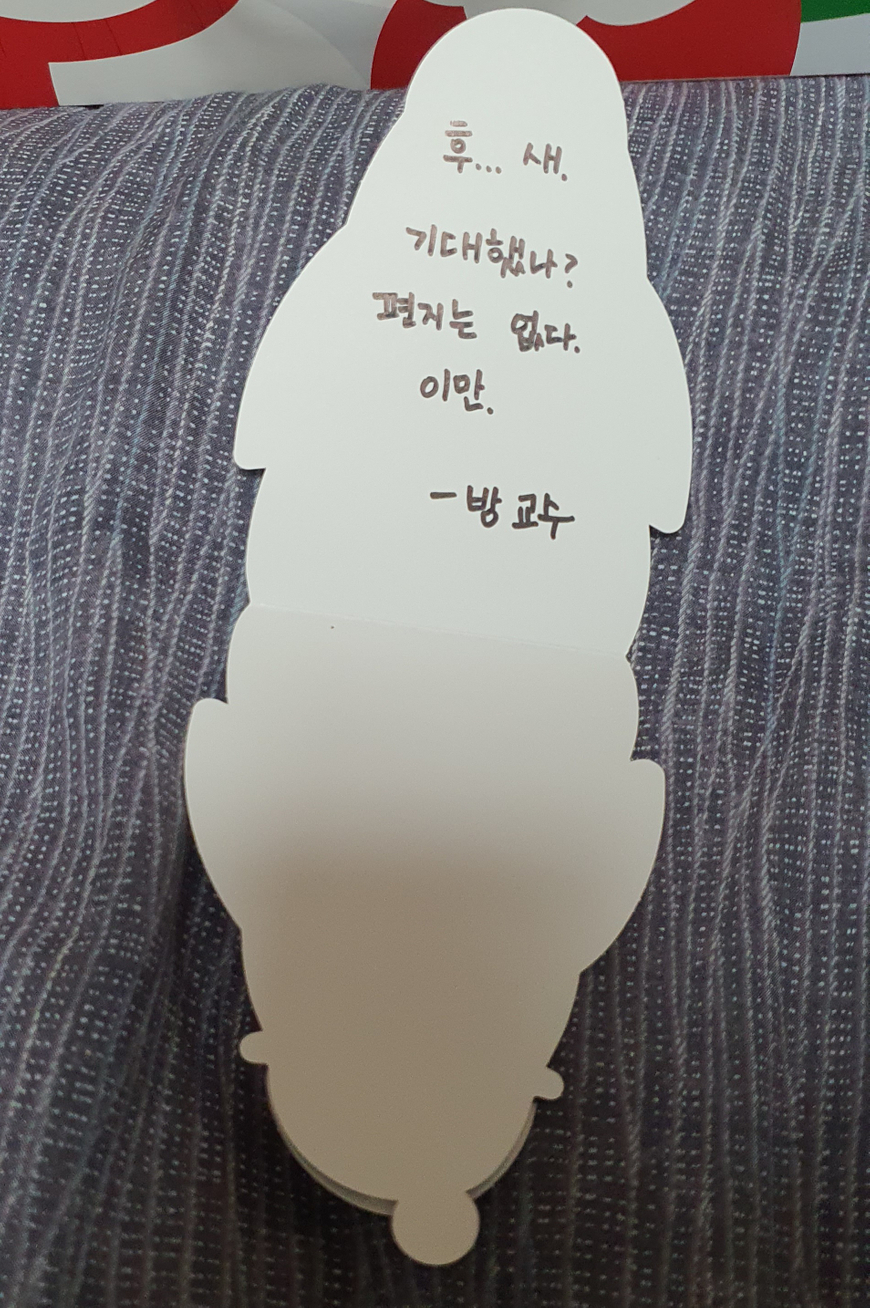 후... 새.
기대했나?
편지는 없다.
이만.
- 방 교수